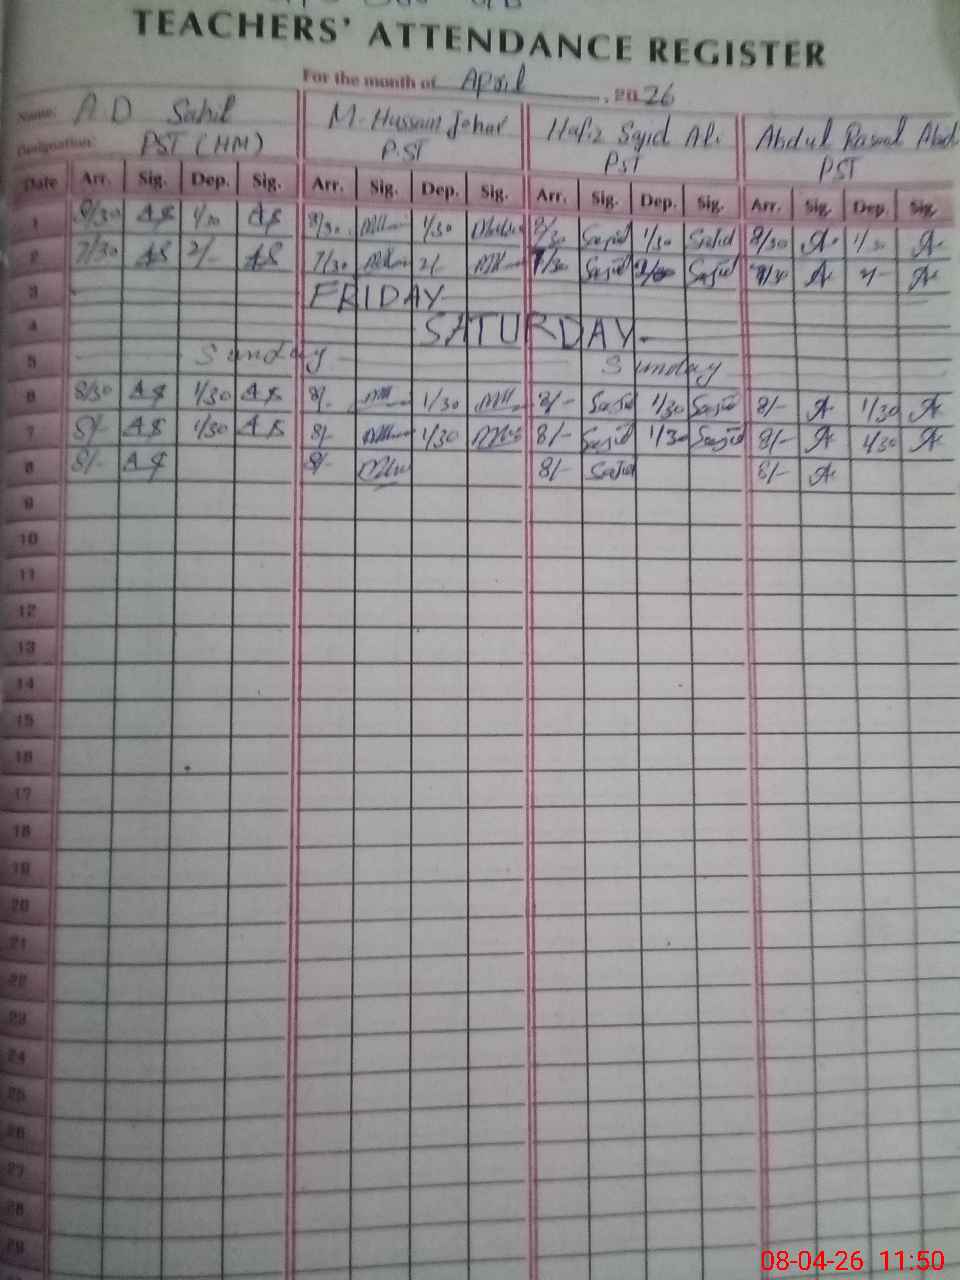 TEACHERS' ATTENDANCE REGISTER
For the month of April 2026
Name: A.D Sahil M. Hussain Johar Hafiz Sajid Ali Abdul Rasool
Designation: PST (HM) P.ST PST PST
Date Arr. Sig. Dep. Sig. Arr. Sig. Dep. Sig. Arr. Sig. Dep. Sig. Arr. Sig. Dep. Sig.
1 8/30 AS AS 8/30 1/30 8/30 Sajid 1/30 Sajid 8/30 A 1/30 A
2 7/30 AS 2/- AS 7/30 2/- 7/30 Sajid Sajid A A
3 FRIDAY
4 SATURDAY
5 Sunday Sunday
6 8/30 AS 1/30 AS 8/- 1/30 8/- Sajid 1/30 Sajid 8/- A 1/30 A
7 8/- AS 1/30 AS 8/- 1/30 8/- Sajid 1/30 Sajid 8/- A 1/30 A
8 8/- AS 8/- 8/- Sajid 8/- A
9
10
11
12
13
14
15
16
17
18
19
20
21
22
23
24
25
26
27
28
29
08-04-26 11:50